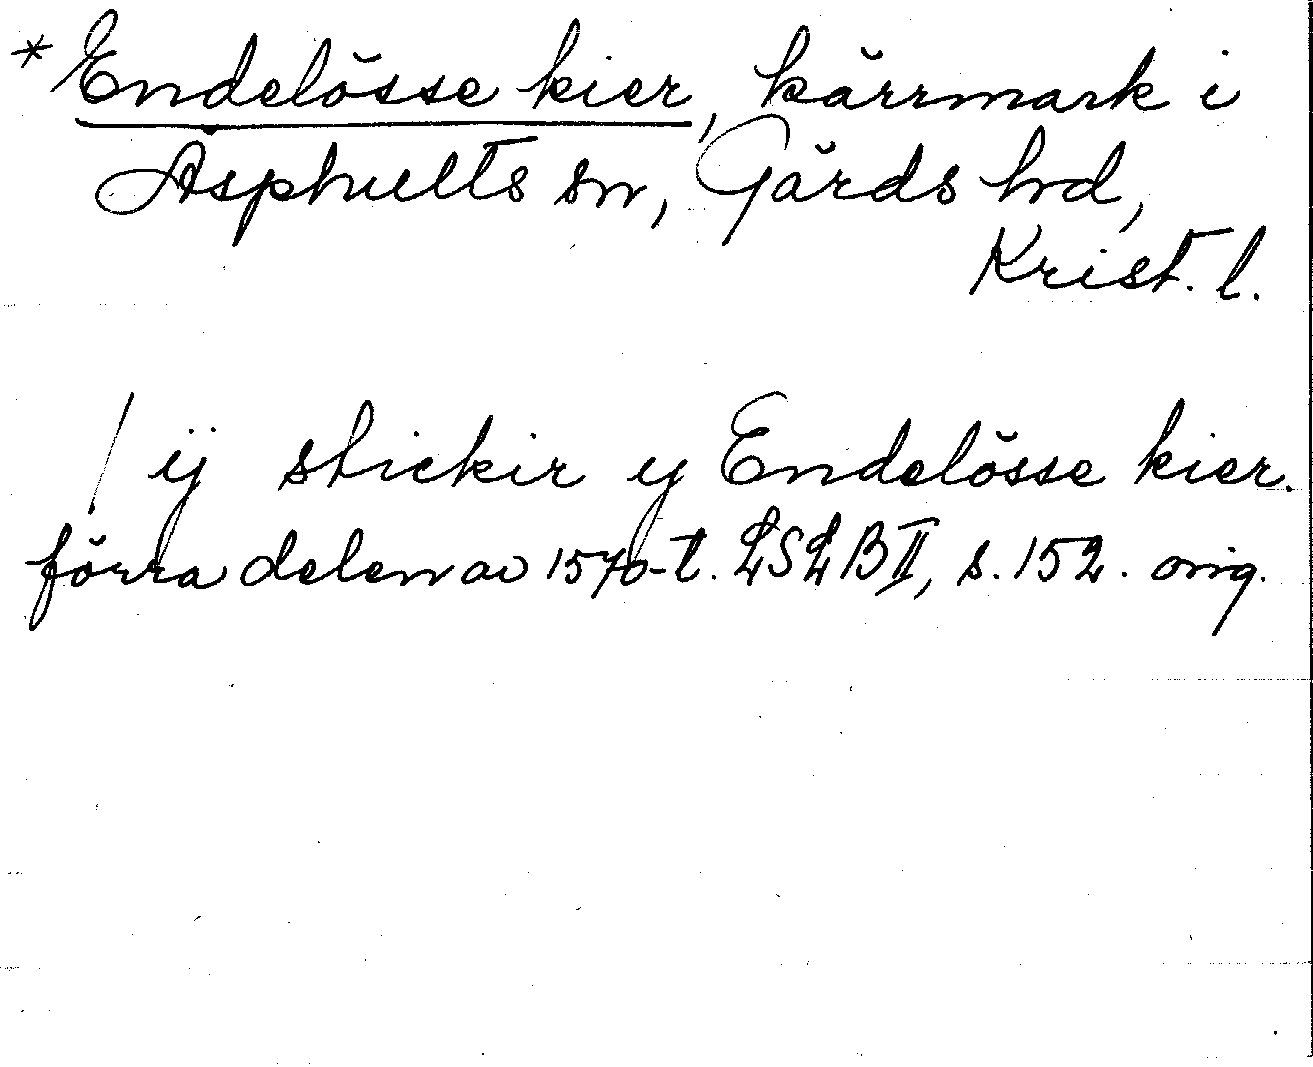 *Endelösse kier, kärrmark i
Asphults sn, Gärds hd,
Krist. l.
/ ij stickir y Endelösse kier.
förra delen av 1570-t. LSLB II, s. 152. orig.